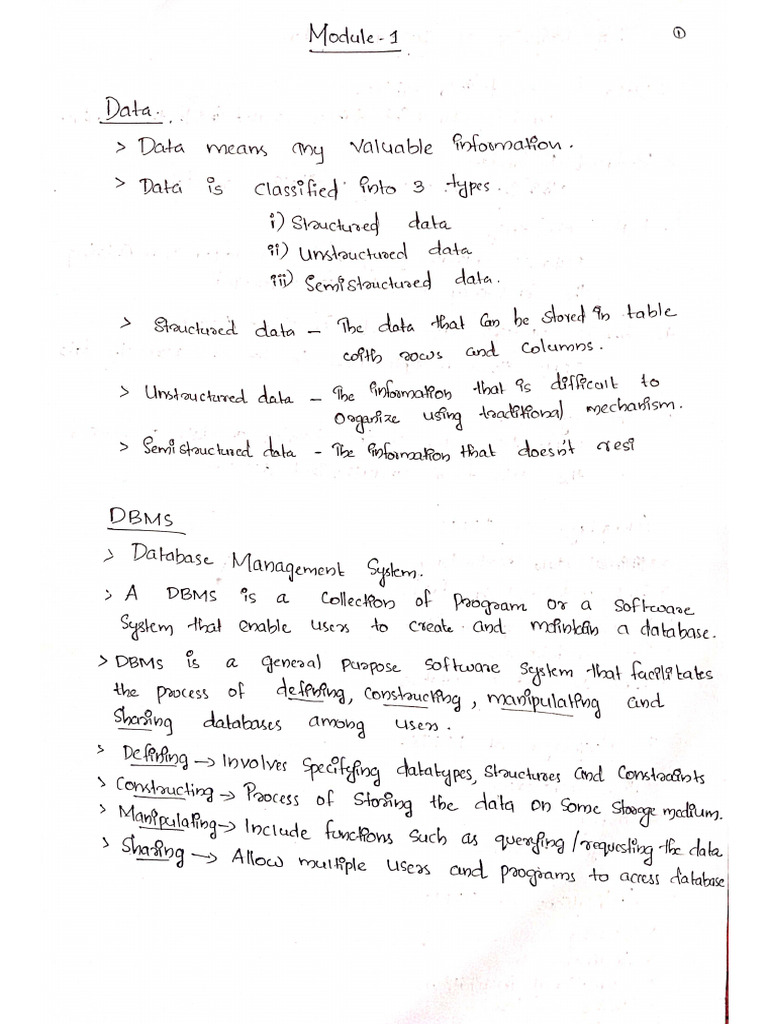 Module-1
①
Data.
> Data means any valuable information.
> Data is classified into 3 types.
i) Structured data
ii) Unstructured data
iii) Semistructured data.
> Structured data – The data that can be stored in table
with rows and columns.
> Unstructured data – The information that is difficult to
organize using traditional mechanism.
> Semistructured data - The information that doesn't resi
DBMS
> Database Management System.
> A DBMS is a collection of program or a software
system that enable users to create and maintain a database.
> DBMS is a general purpose software system that facilitates
the process of defining, constructing, manipulating and
sharing databases among users.
> Defining → Involves specifying datatypes, structures and constraints
> Constructing → Process of storing the data on some storage medium.
> Manipulating → Include functions such as querying/requesting the data
> Sharing → Allow multiple users and programs to access database